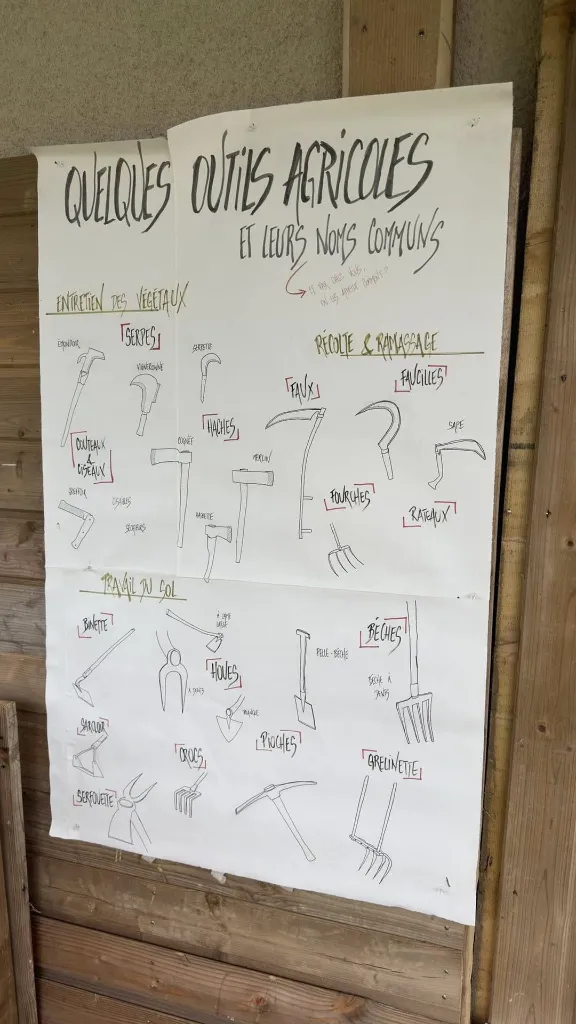 QUELQUES OUTILS AGRICOLES
ET LEURS NOMS COMMUNS
ENTRETIEN DES VÉGÉTAUX
SERPES
VIGNERONNE
SERPETTE
COUTEAUX
&
CISEAUX
CISAILLES
SÉCATEURS
HACHES
COGNÉE
MERLIN
HACHETTE
RÉCOLTE & RAMASSAGE
FAUX
FAUCILLES
SAPE
FOURCHES
RATEAUX
TRAVAIL DU SOL
BINETTE
À LAME
HOUES
À DENTS
PELLE-BÊCHE
BÊCHES
BÊCHE À
DENTS
SARCLOIR
CROCS
PIOCHES
GRELINETTE
SERFOUETTE